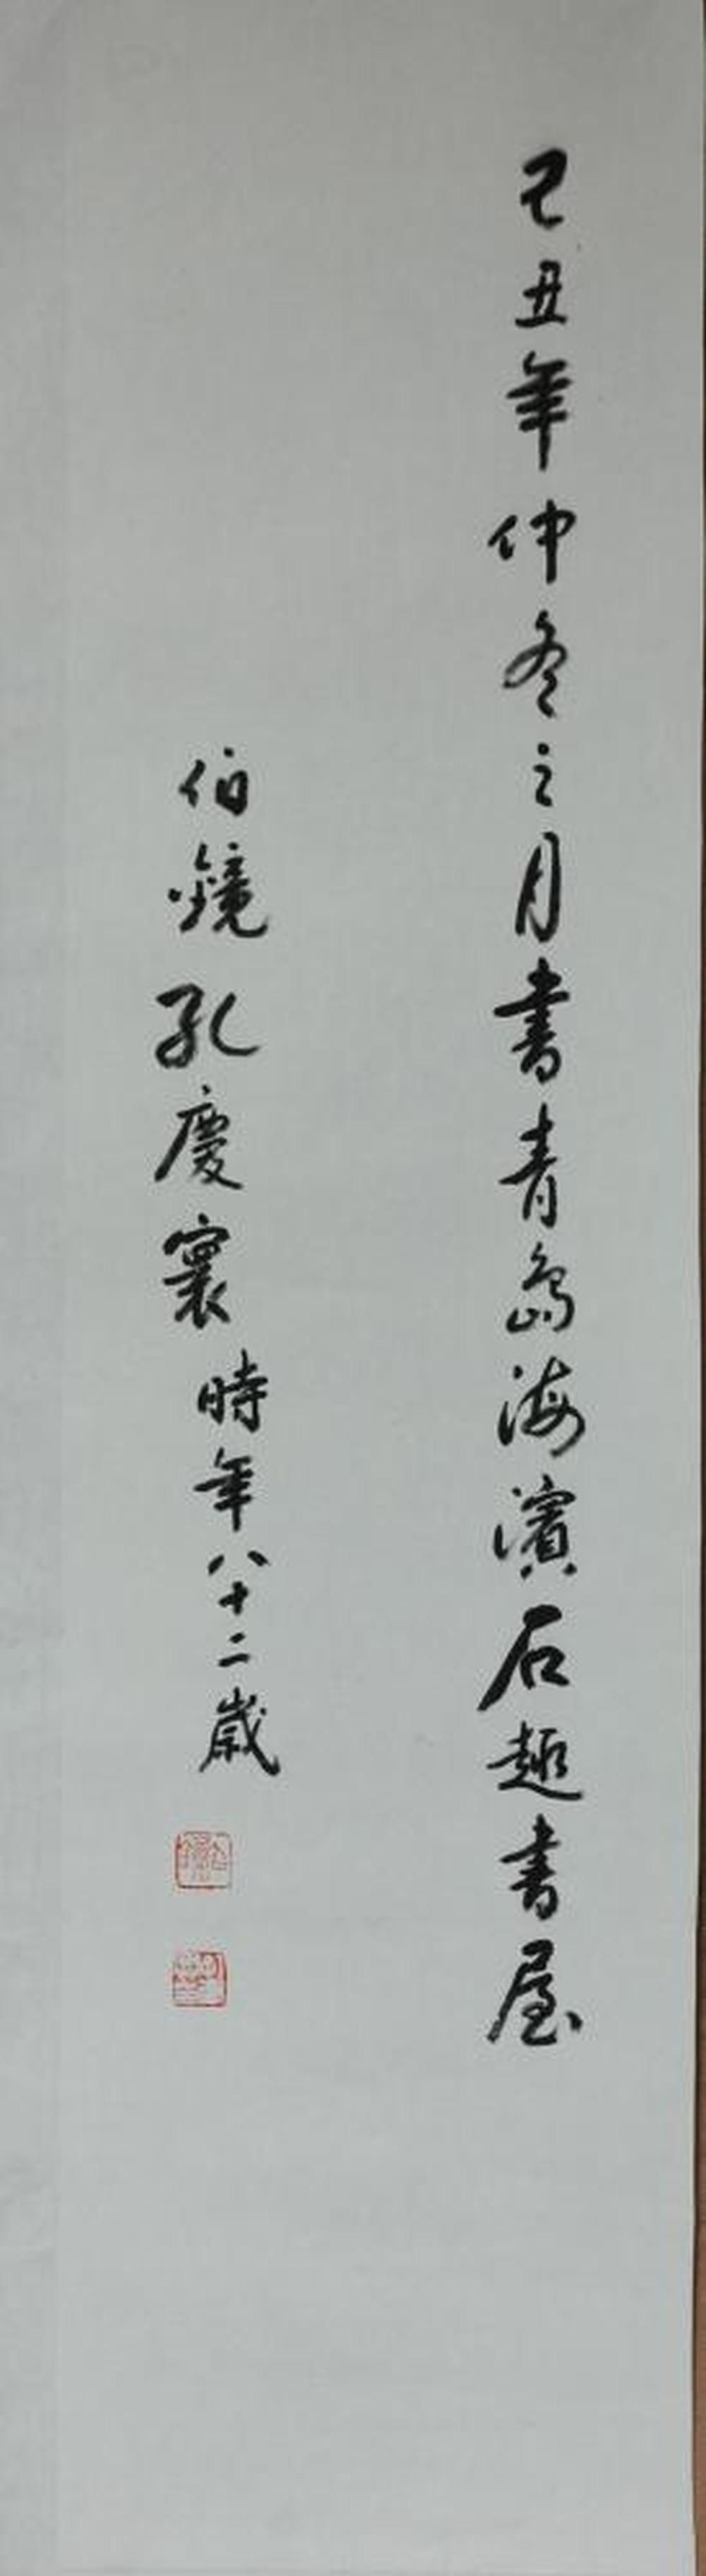 己丑年仲冬之月書青島海濱石趣書屋
伯鏡孔慶寰時年八十二歲